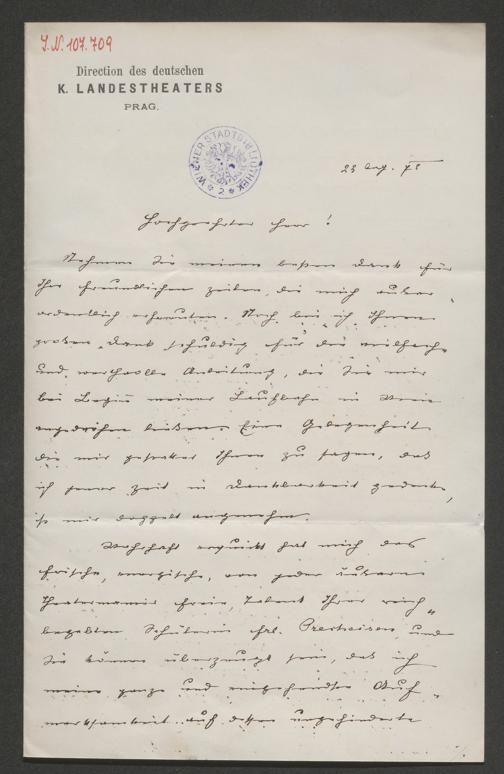 J.N. 107.709
Direction des deutschen
K. LANDESTHEATERS
PRAG.
WIENER STADTBIBLIOTHEK
23 Aug. 78
Hochgeehrter Herr!
Nehmen Sie meinen besten Dank für
Ihre freundlichen Zeilen, die mich außer-
ordentlich erfreuten. Noch bin ich Ihnen
großen Dank schuldig für die vielfache
und werthvolle Anleitung, die Sie mir
bei Beginn meiner Laufbahn in Wien
angedeihen ließen. Eine Gelegenheit
die mir gestattet Ihnen zu sagen, daß
ich jener Zeit in Dankbarkeit gedenke,
ist mir doppelt angenehm.
Wahrhaft erquickt hat mich das
frische, energische, von jeder äußeren
Theatermanier freie, Talent Ihrer reich
begabten Schülerin Frl. und
Sie können überzeugt sein, daß ich
meine ganze und eingehendste Auf-
merksamkeit auf deßen ungehinderte